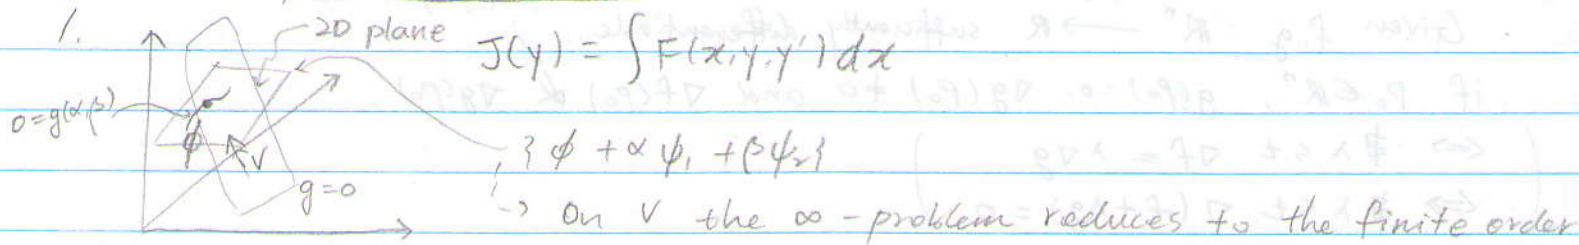 1.
2D plane
J(y) = ∫F(x,y,y')dx
0=g(α,β)
ϕ
V
{ϕ + αψ₁ + βψ₂}
g=0
→ On V the ∞-problem reduces to the finite order